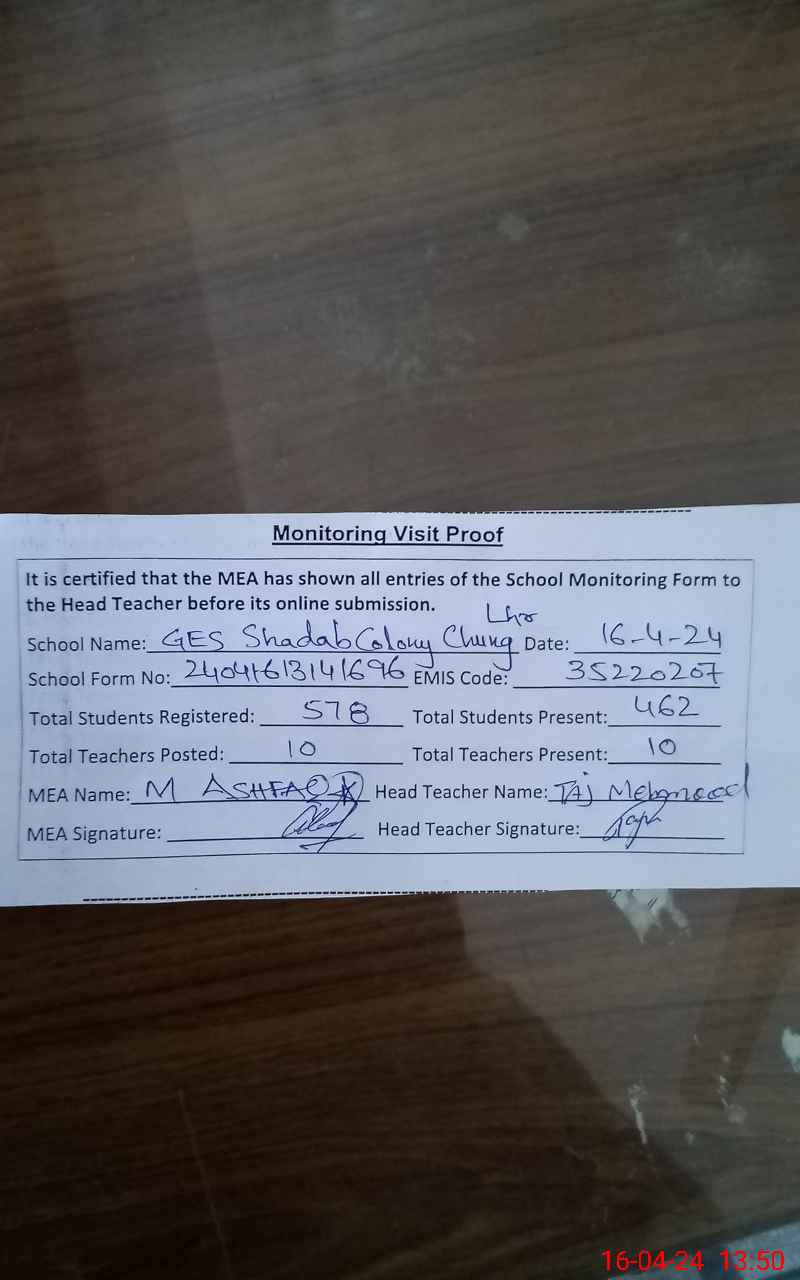 Monitoring Visit Proof
It is certified that the MEA has shown all entries of the School Monitoring Form to
the Head Teacher before its online submission.
Lhr
School Name: GES Shadab Colony Chung Date: 16-4-24
School Form No: 24041613141696 EMIS Code: 35220207
Total Students Registered: 578 Total Students Present: 462
Total Teachers Posted: 10 Total Teachers Present: 10
MEA Name: M ASHFAQ Head Teacher Name: TAj Mehmood
MEA Signature: Head Teacher Signature:
16-04-24 13:50